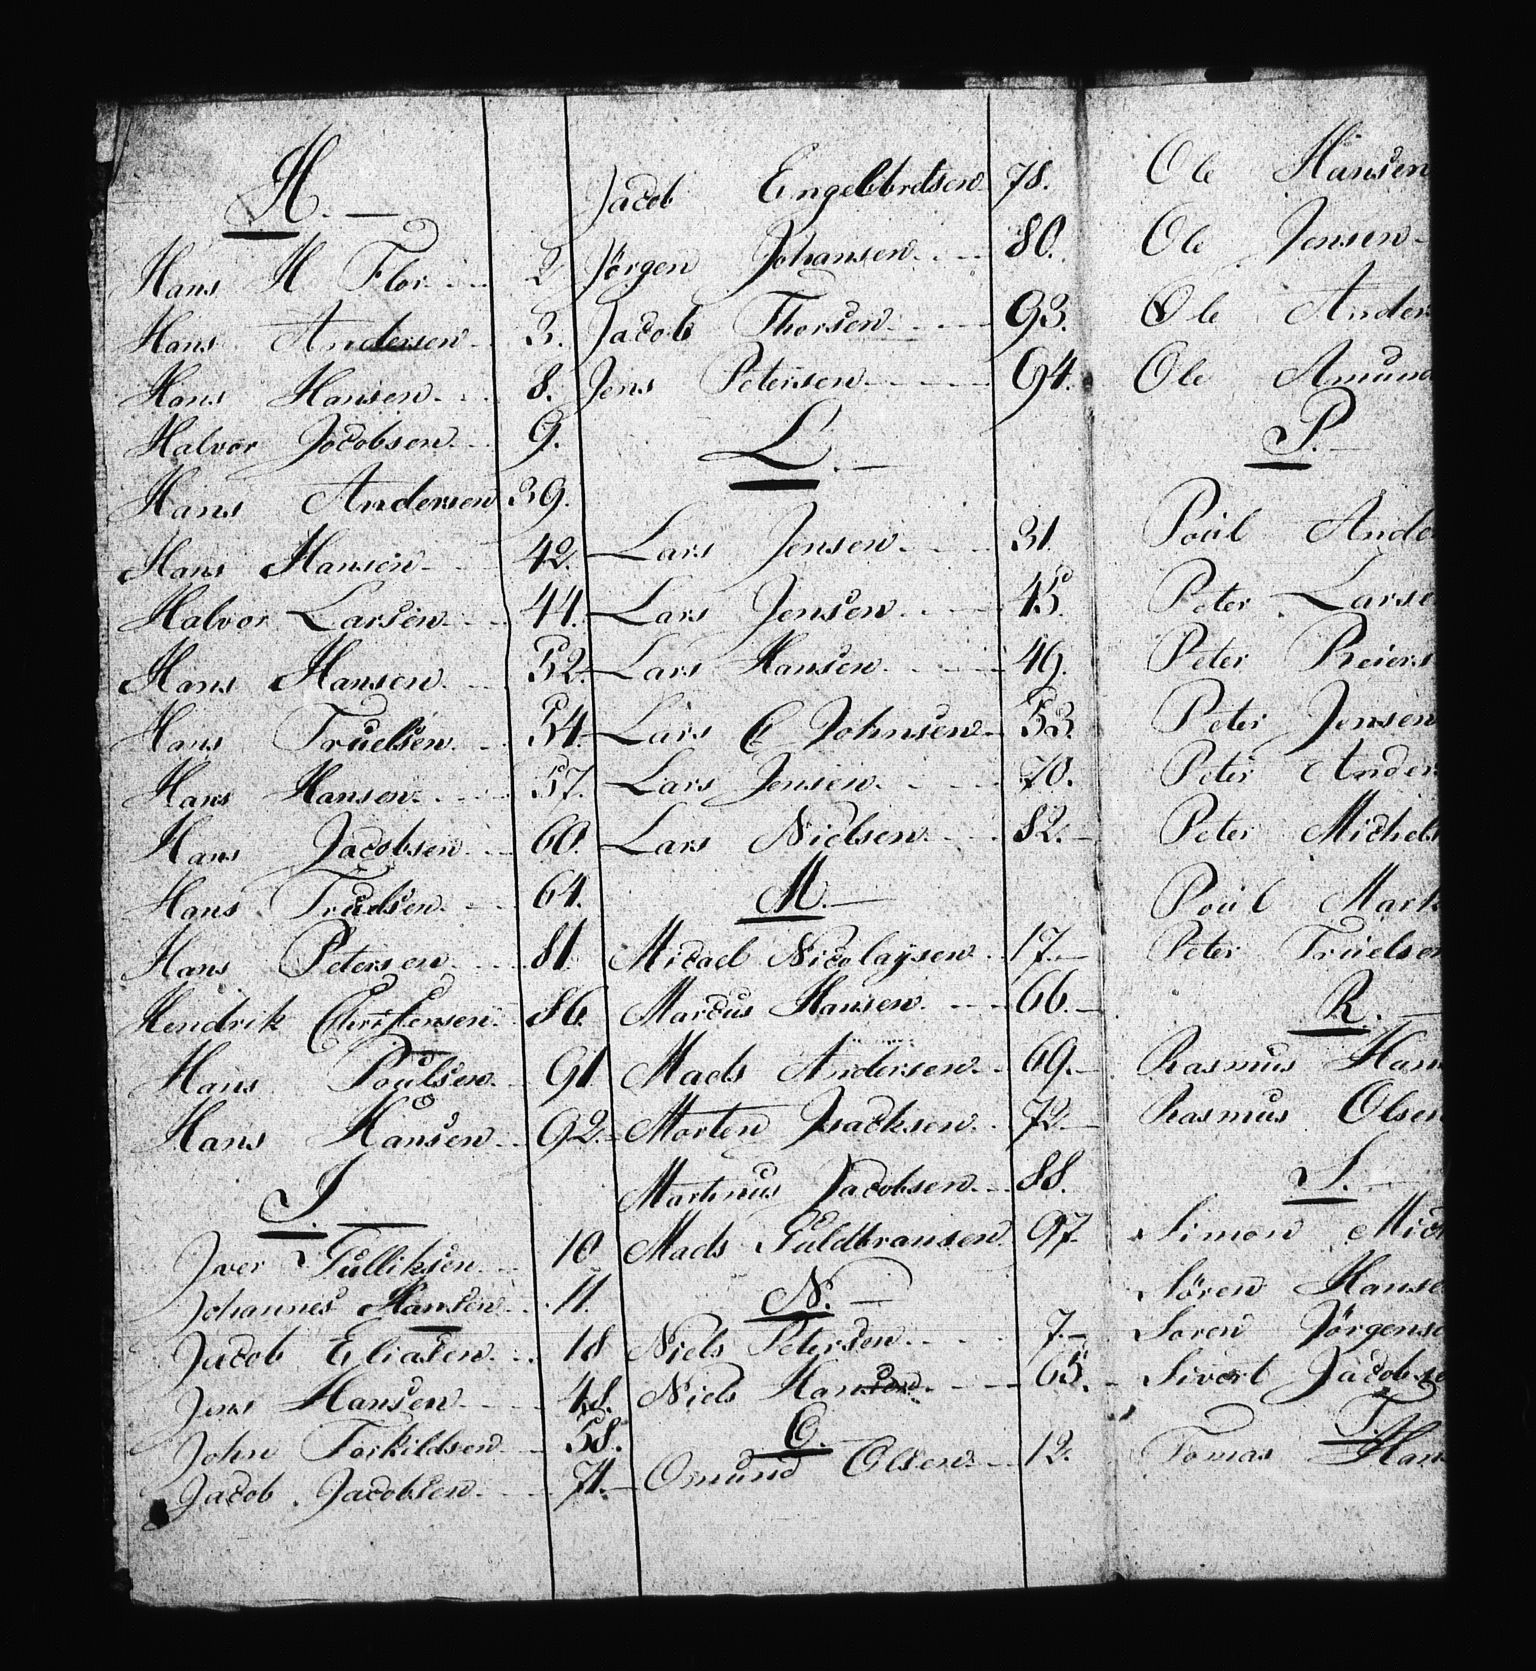 H.
Hans H Flor 2
Hans Andersen 3.
Hans Hansen 8.
Halvor Jacobsen 9.
Hans Andersen 39.
Hans Hansen 42.
Halvor Larsen 44.
Hans Hansen 52.
Hans Truelsen 54.
Hans Hansen 57.
Hans Jacobsen 60.
Hans Truelsen 64.
Hans Petersen 81
Hendrik Christensen 86.
Hans Poulsen 91
Hans Hansen 92.
J.
Jver Gulliksen 10
Johannes Hansen 11.
Jacob Eliasen 18
Jens Hansen 48.
John Torkildsen 58.
Jacob Jacobsen 71.
Jacob Engelbretsen 78.
Jörgen Johansen 80.
Jacob Thorsen 93.
Jens Petersen 94.
L.
Lars Jensen 31.
Lars Jensen 45.
Lars Hansen 49.
Lars C Johnsen 53.
Lars Jensen 70.
Lars Nielsen 82.
M.
Micael Nicolaysen 17.
Marcus Hansen 66.
Mads Andersen 69.
Morten Jsacksen 72
Martinus Jacobsen 88.
Mads Guldbransen 97
N.
Niels Petersen 7.
Niels Hansen 65.
O.
Omund Olsen 12.
Ole Hansen
Ole Jensen
Ole Ander
Ole Amund
P.
Poül Ande
Peter Larse
Peter Reiers
Peter Jensen
Peter Anders
Peter Michels
Poül Mart
Peter Truelsen
R.
Rasmus Han
Rasmus Olsen
S.
Simon Mich
Sören Hanse
Soren Jörgense
Sivert Jacobse
T.
Tomas Han